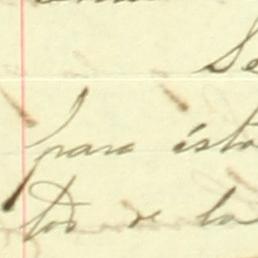 Se
para ésta
tos de la